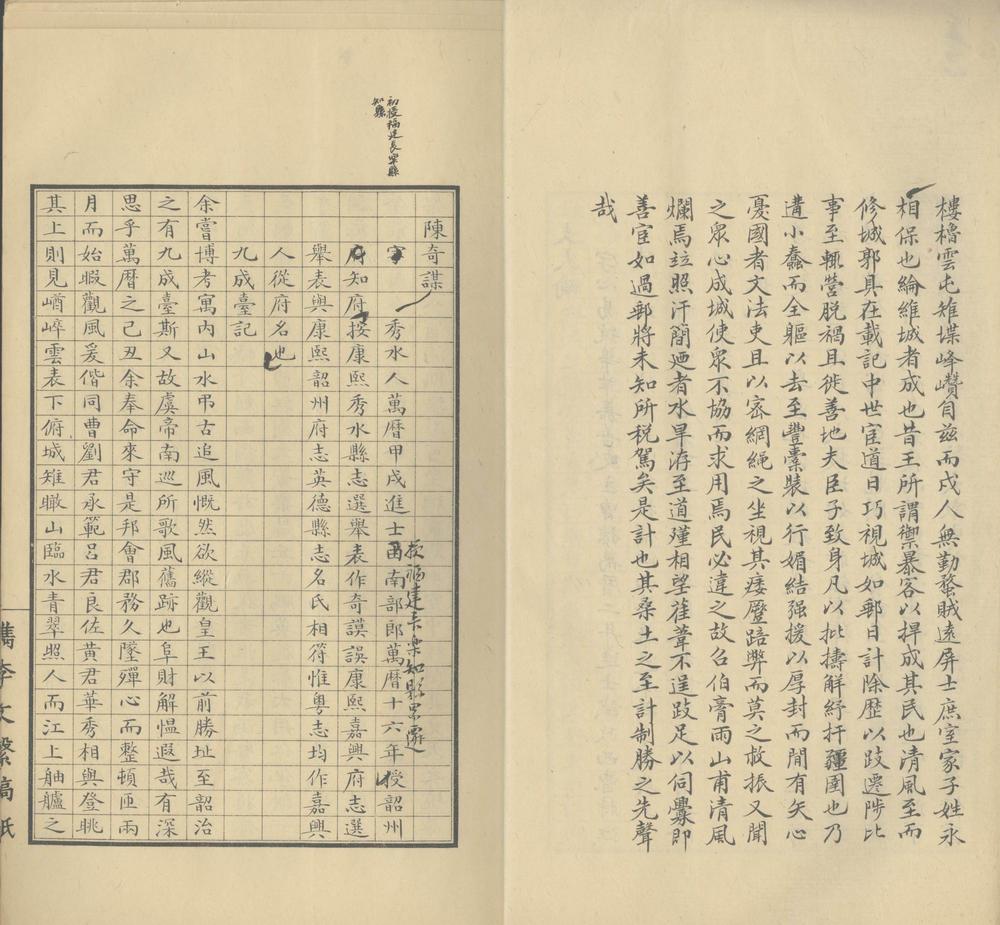 樓櫓雲屯雉堞峰巑自茲而戍人無勤蝥賊遠屏士庶室家子姓永
相保也綸維城者成也昔王所謂禦暴客以捍成其民也清風至而
修城郭具在載記中世宦道日巧視城如郵日計除歷以跂遷陟比
事至輒營脫禍且徙善地夫臣子致身凡以批擣解紓扞疆圉也乃
遘小蠢而全軀以去至豐橐裝以行媚結强援以厚封而間有矢心
憂國者文法吏且以密綱繩之坐視其痿蹷踣弊而莫之救振又聞
之眾心成城使眾不協而求用焉民必違之故召伯膏雨山甫清風
爛焉竝照汗簡廼者水旱洊至道殣相望萑葦不逞跂足以伺釁即
善宦如過郵將未知所稅駕矣是計也其桑土之至計制勝之先聲
哉
初授福建長樂縣
知縣
陳奇謀
字 秀水人萬曆甲戌進士由南部郎萬曆十六年授韶州
授福建長樂知縣累遷
府知府按康熙秀水縣志選舉表作奇謨誤康熙嘉興府志選
舉表與康熙韶州府志英德縣志名氏相符惟粵志均作嘉興
人從府名也
九成臺記
余嘗博考寓內山水弔古追風慨然欲縱觀皇王以前勝址至韶治
之有九成臺斯又故虞帝南巡所歌風舊跡也阜財解慍遐哉有深
思乎萬曆之己丑余奉命來守是邦會郡務久墜殫心而整頓匝兩
月而始暇觀風爰偕同曹劉君承範呂君良佐黃君華秀相與登眺
其上則見崷崒雲表下俯城雉瞰山臨水青翠照人而江上舳艫之
檇李文繫稿紙